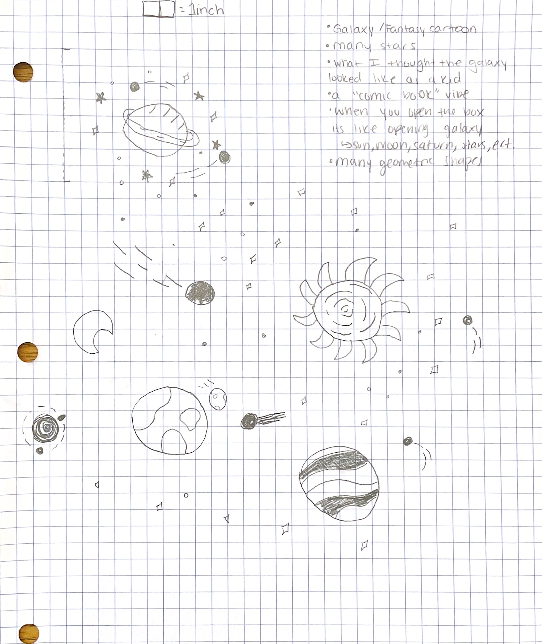 = 1inch
• Galaxy/Fantasy cartoon
• many stars
• what I thought the galaxy
looked like as a kid
• a "comic book" vibe
• when you open the box
its like opening galaxy
↳ sun, moon, saturn, stars, ect.
• many geometric shapes